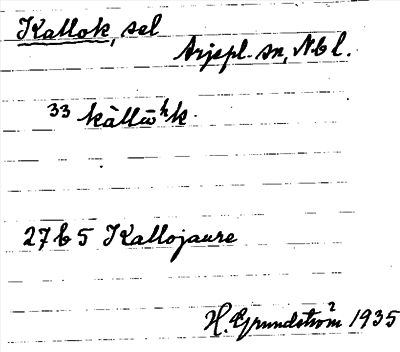 Kallok, sel
Arjepl. sn, Nbl.
33 kàllōʰk.
27 b 5 Kallojaure
H. Grundström 2 1935